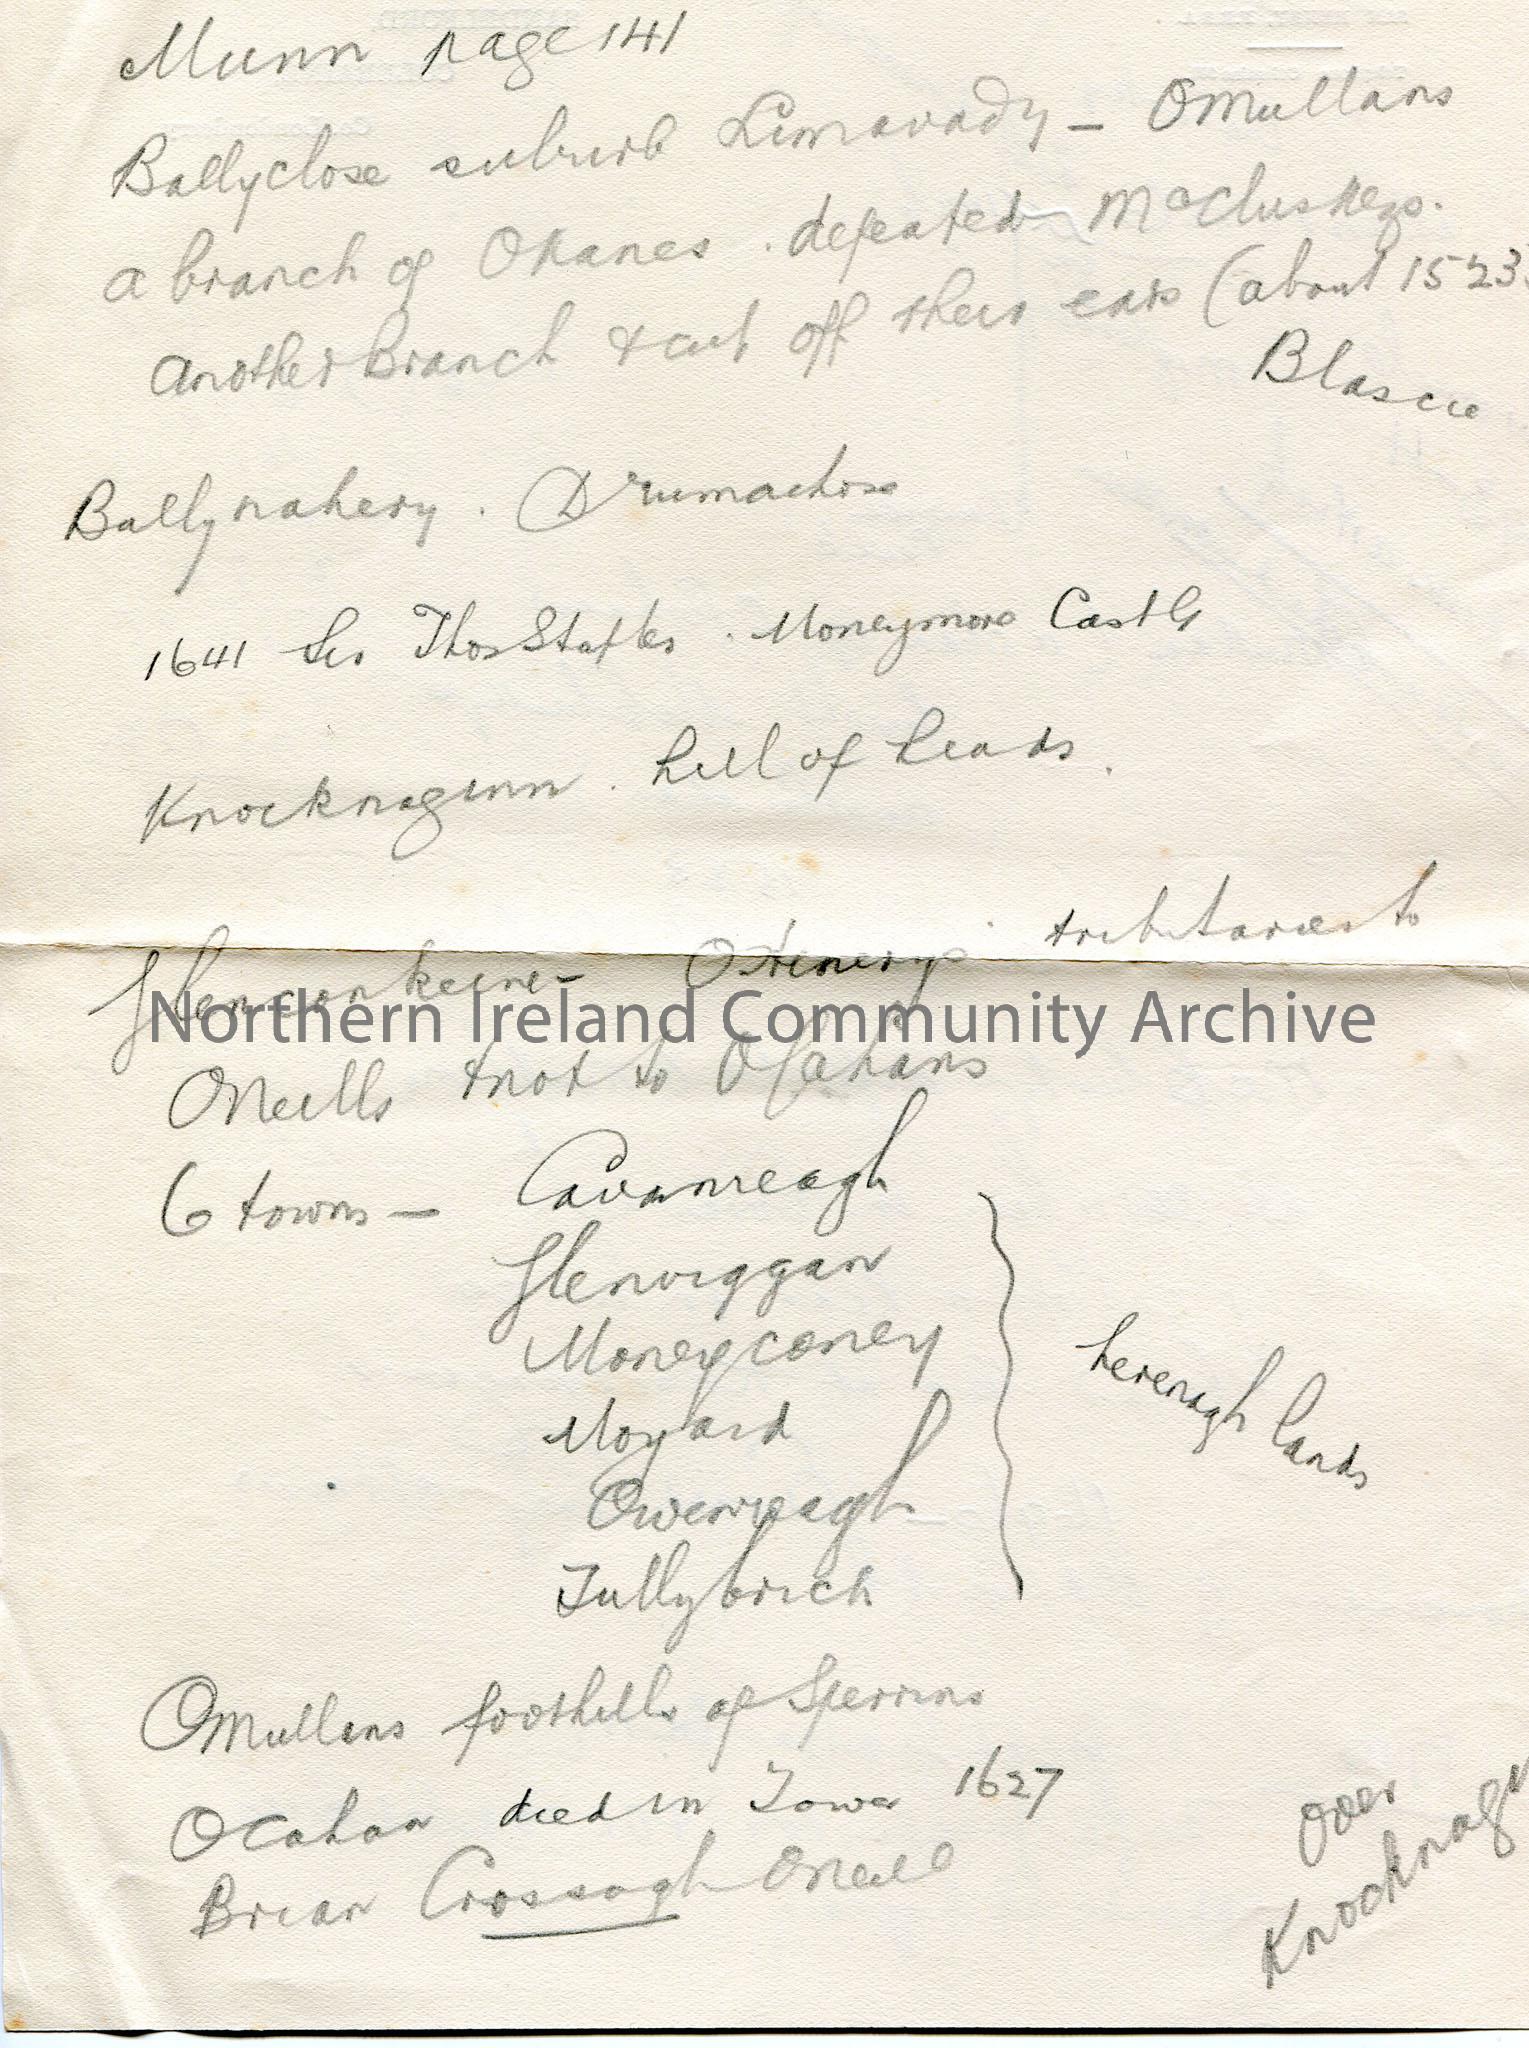 Munn page 141
Ballyclose suburb Limavady - OMullans
a branch of OKanes . defeated McCluskeys.
another Branch & cut off their ears (about 1523
Blascu
Ballynahery . Drumachose
1641 Sir Thos Staples . Moneymore Castle
Knocknaginn . hill of heads.
Glenconkeine - OHenerys tributaries to
ONeills & not to OCahans
6 towns - Cavanreagh
Glenviggan
Moneyconey
Moyard
Owenreagh
Tullybrick
herenagh lands
OMullans foothills of Sperrins
OCahan died in Tower 1627
Brian Crossagh ONeill
over
Northern Ireland Community Archive